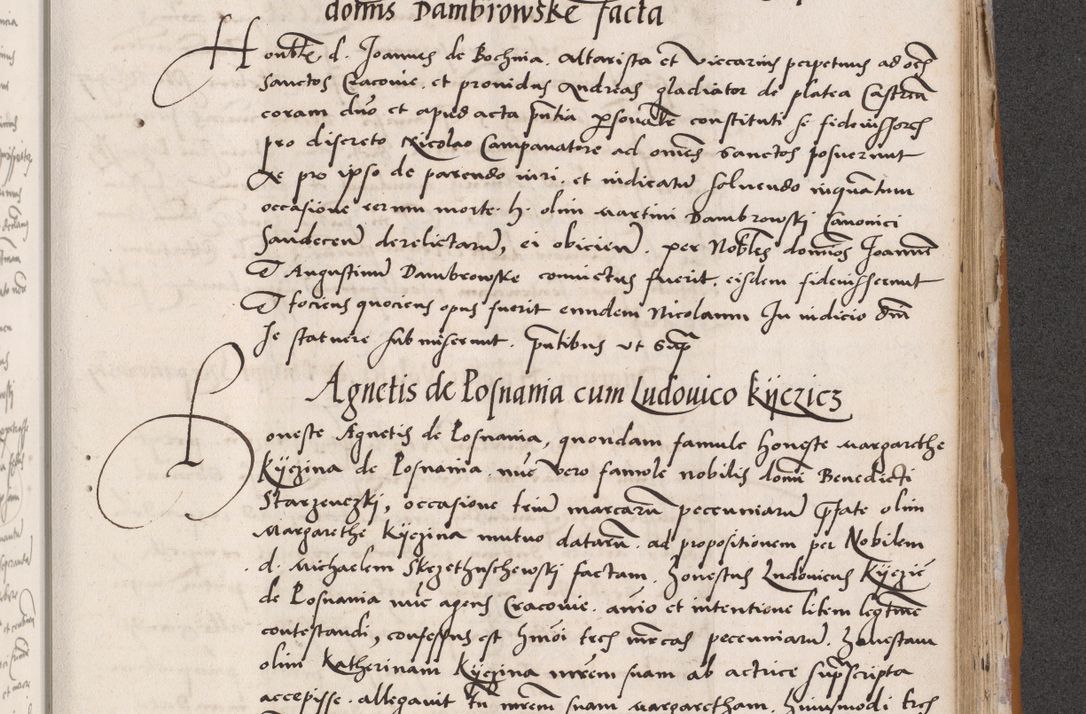 domis Dambrowske facta
Honble d. Joannes de Bochnia. altarista et viccarius perpetuus ad oes
Sanctos Cracovie. et providus Andreas gladiator de platea Castren
coram duo et apud acta pntia psonalr constituti se fideiussores
pro discreto Nicolao Campanatore ad omes Sanctos posuerunt
Et pro ipso de parendo iuri. et iudicatu solvendo inquantum
occasione rerum morte. h. olim Martini Dambrowskj Canonici
Sandecen derelictaru, ei obicien. per Nobles domios Joanne
Et Augustinu Dambrowske convictus fuerit. eisdem fideiusserunt
Et tociens quociens opus fuerit eundem Nicolaum In iudicio dni
se statuere submiserunt. pntibus ut supra
Agnetis de Posnania cum Ludovico Kijczicz
Honeste Agnetis de Posnania, quondam famule honeste Margarethe
Kijczina de Posnania. nuc vero famole nobilis domi Benedicti
Starzenczkj, occasione triu marcaru pecuniaru pfate olim
Margarethe Kijczina mutuo dataru. ad propositionem per Nobilem
d. Michaelem Skrzethuschewskj factam. Honestus Ludovicus Kijczic
de Posnania nuc agens Cracovie. anio et intentione litem legtime
contestandi, confessus est hmoi tres mrcas pecuniaru. Honestam
olim Katherinam Kijczina mrem suam ab actrice suprscripta
accepisse. allegavit tn mrem suam Margaretham. huiusmodi tres